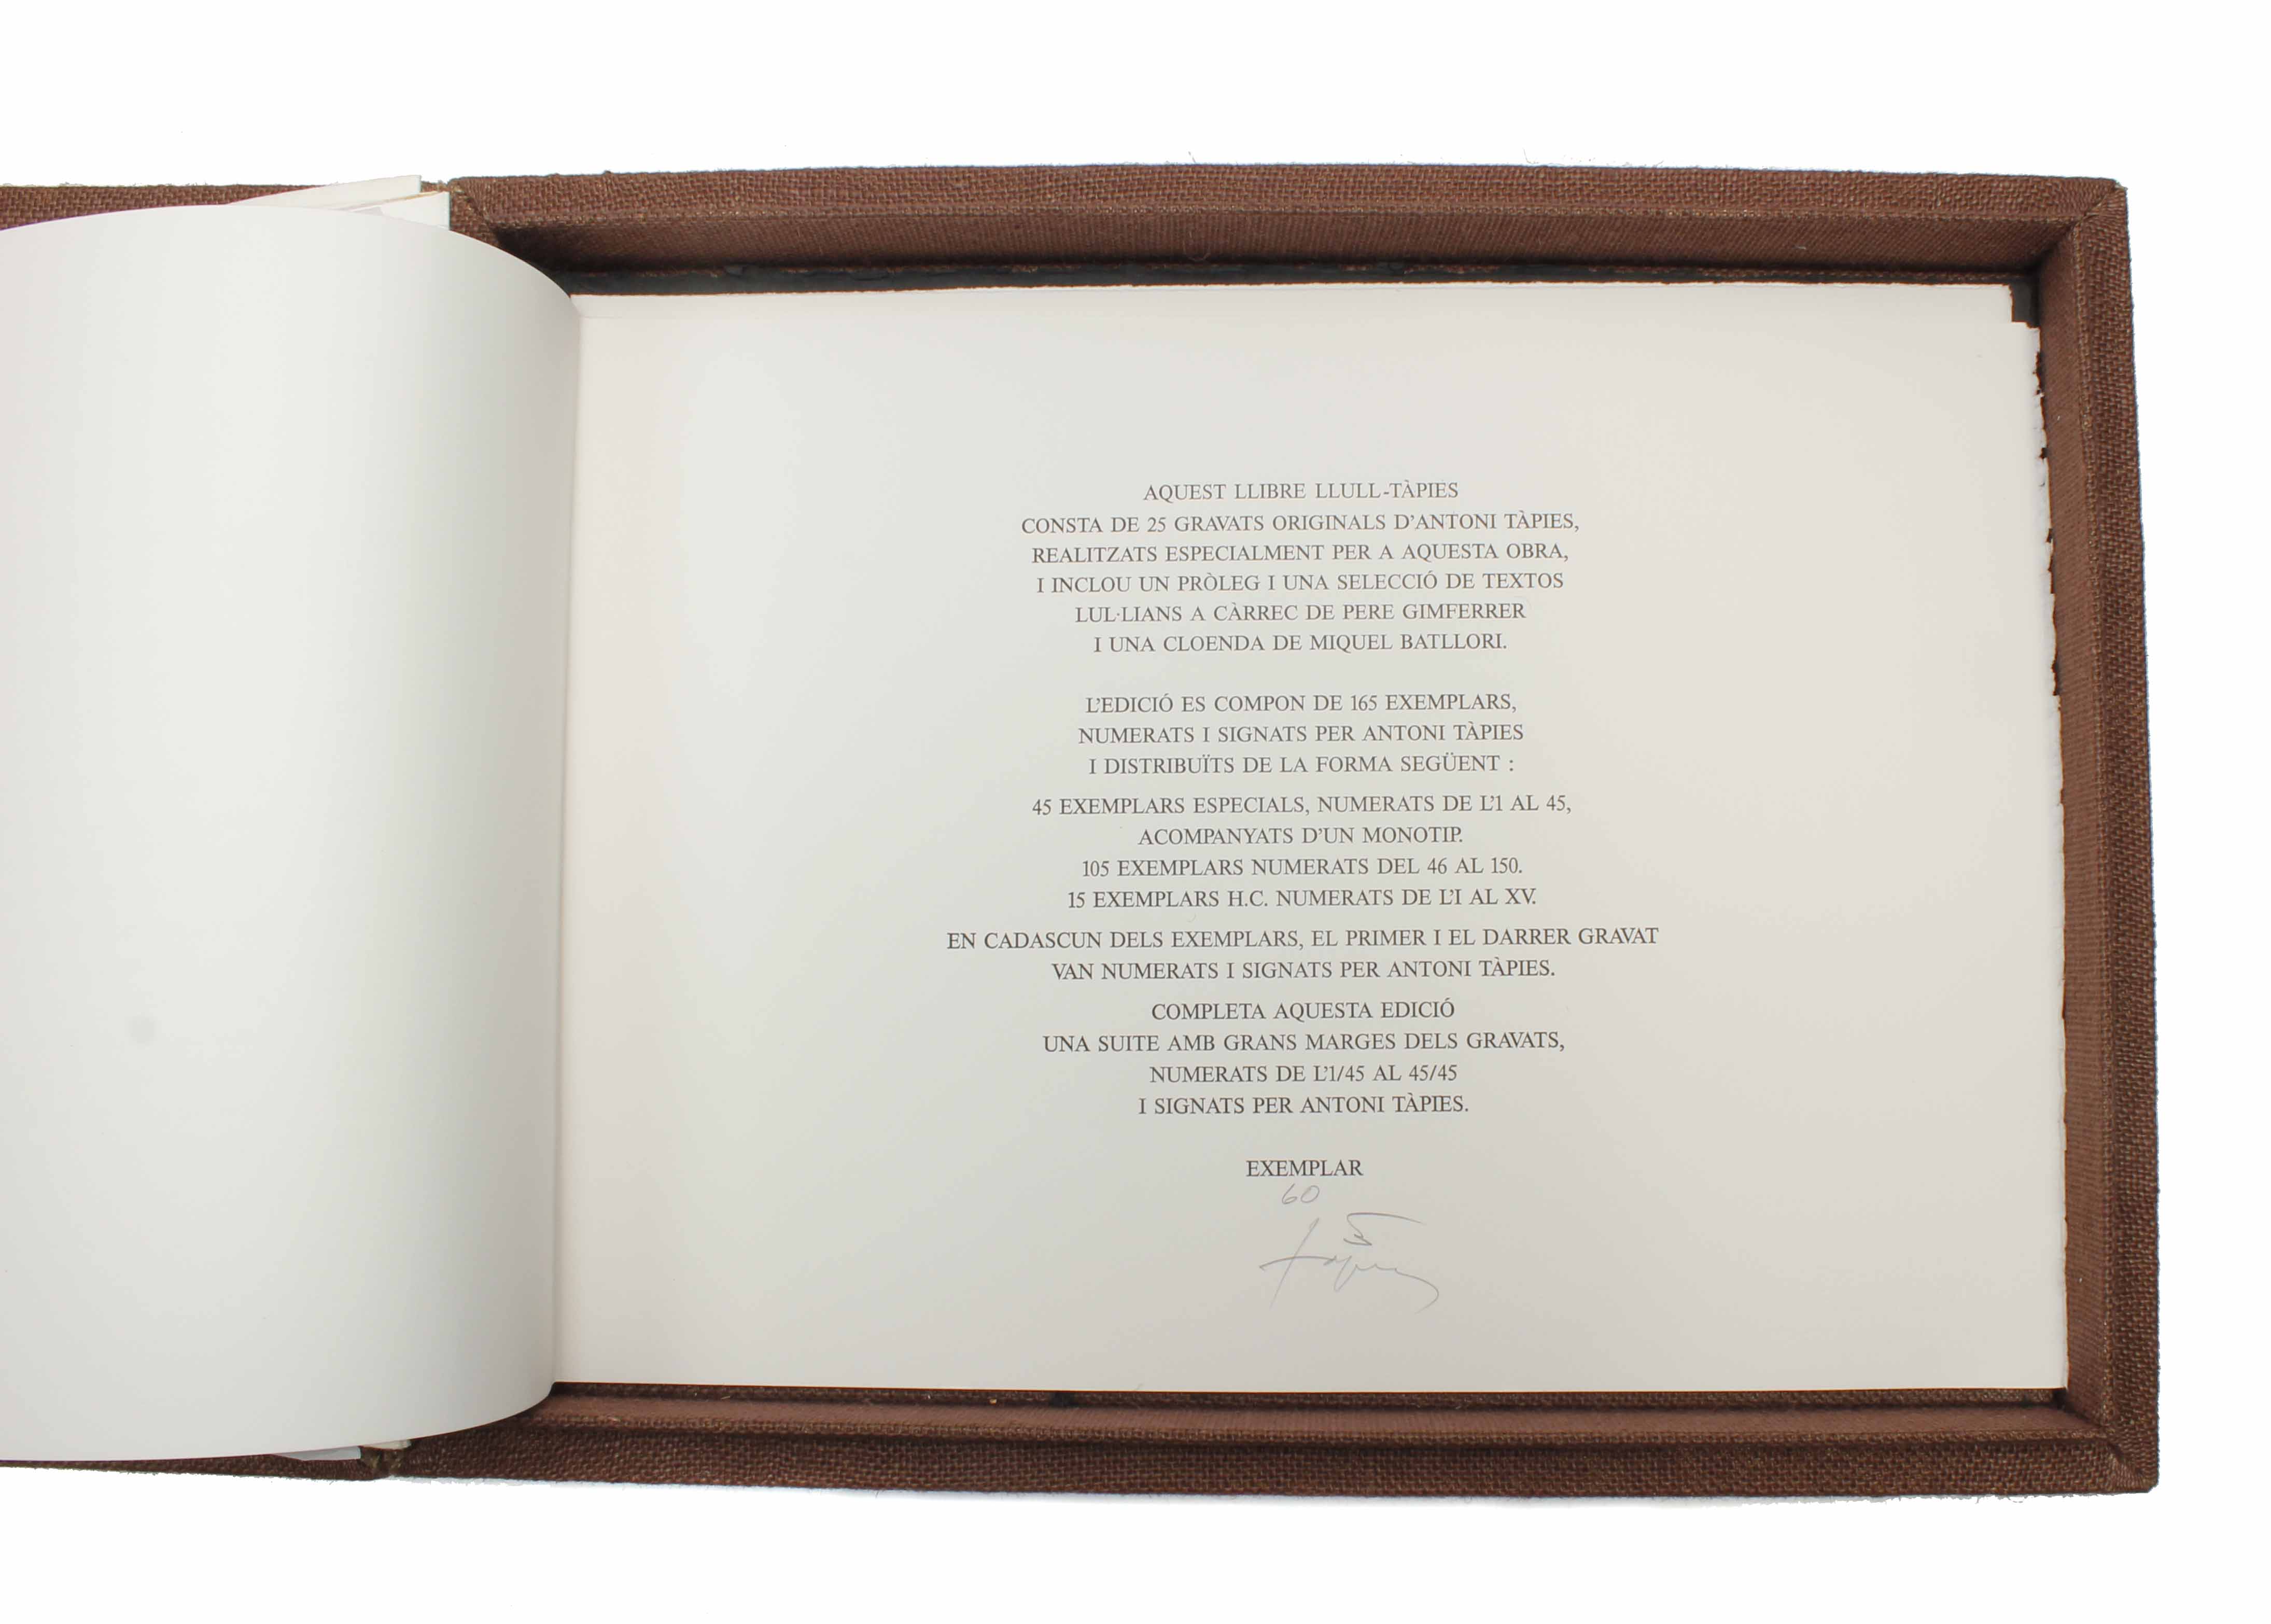 AQUEST LLIBRE LLULL-TÀPIES
CONSTA DE 25 GRAVATS ORIGINALS D'ANTONI TÀPIES,
REALITZATS ESPECIALMENT PER A AQUESTA OBRA,
I INCLOU UN PRÒLEG I UNA SELECCIÓ DE TEXTOS
LUL·LIANS A CÀRREC DE PERE GIMFERRER
I UNA CLOENDA DE MIQUEL BATLLORI.
L'EDICIÓ ES COMPON DE 165 EXEMPLARS,
NUMERATS I SIGNATS PER ANTONI TÀPIES
I DISTRIBUÏTS DE LA FORMA SEGÜENT :
45 EXEMPLARS ESPECIALS, NUMERATS DE L'1 AL 45,
ACOMPANYATS D'UN MONOTIP.
105 EXEMPLARS NUMERATS DEL 46 AL 150.
15 EXEMPLARS H.C. NUMERATS DE L'I AL XV.
EN CADASCUN DELS EXEMPLARS, EL PRIMER I EL DARRER GRAVAT
VAN NUMERATS I SIGNATS PER ANTONI TÀPIES.
COMPLETA AQUESTA EDICIÓ
UNA SUITE AMB GRANS MARGES DELS GRAVATS,
NUMERATS DE L'1/45 AL 45/45
I SIGNATS PER ANTONI TÀPIES.
EXEMPLAR
60
Tàpies